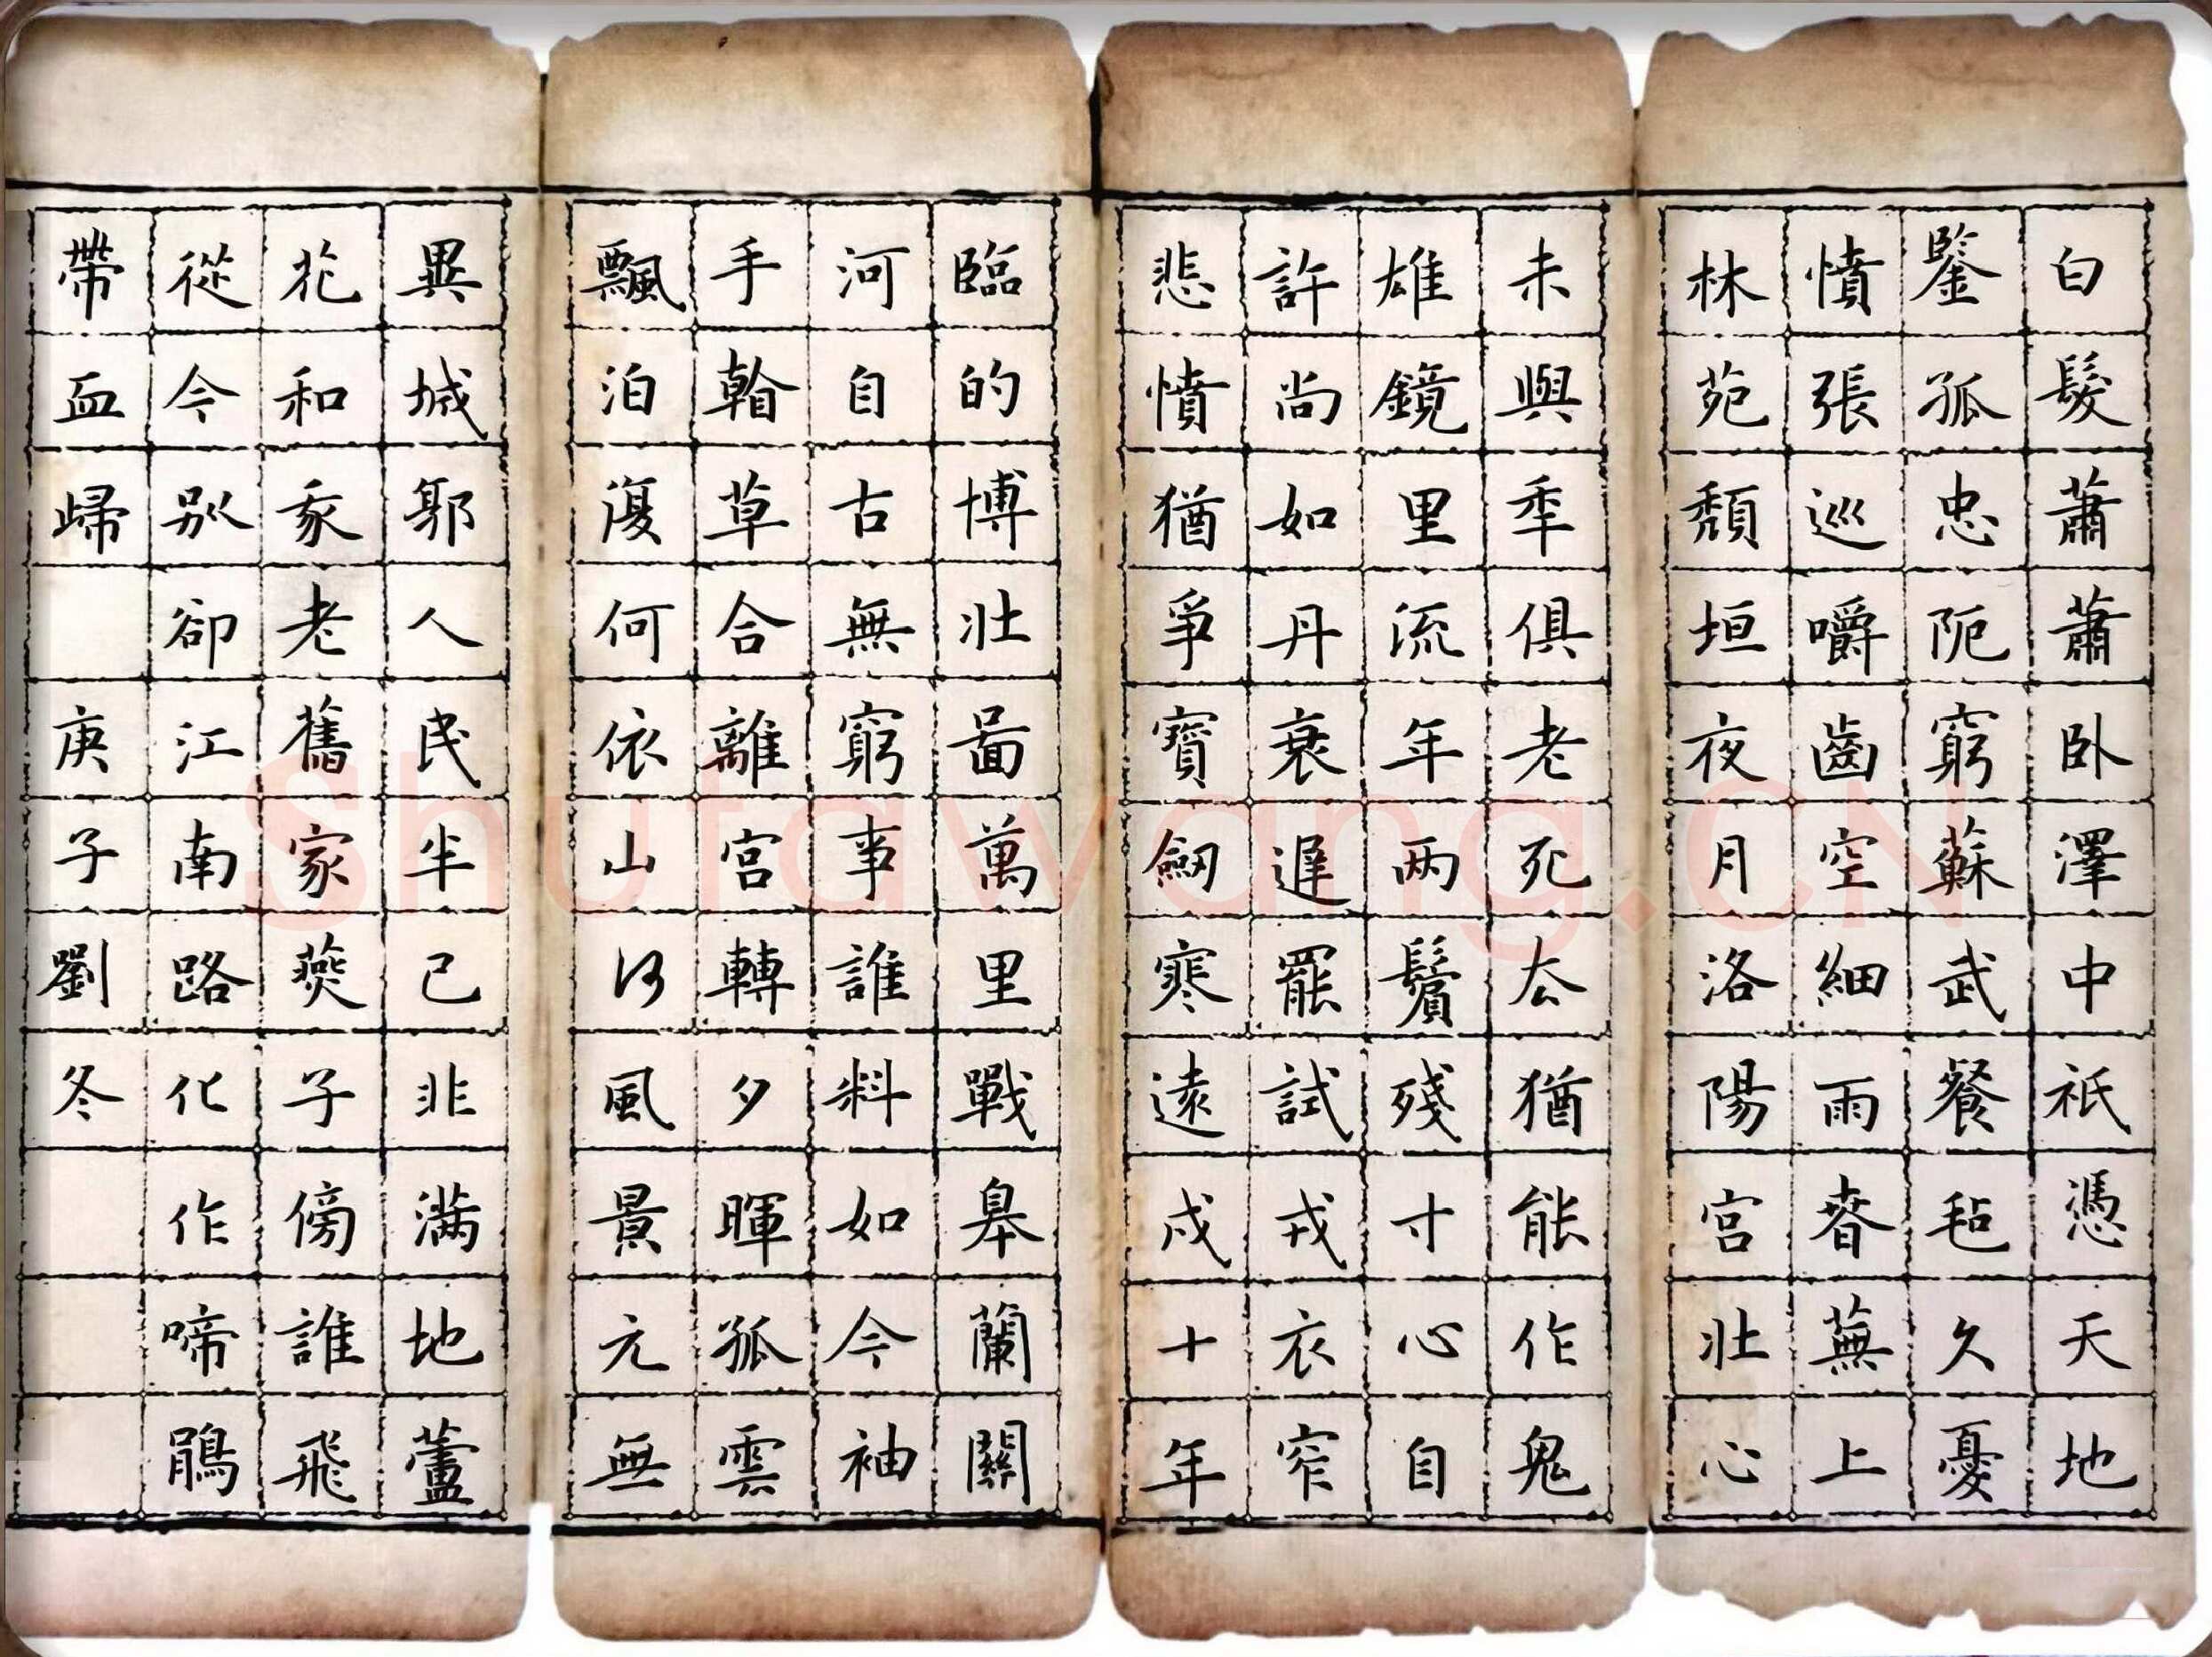 白髮蕭蕭臥澤中祇憑天地
鑒孤忠阨窮蘇武餐氈久憂
憤張巡嚼齒空細雨春蕪上
林苑頹垣夜月洛陽宮壯心
未與年俱老死去猶能作鬼
雄鏡里流年两鬢殘寸心自
許尚如丹衰遲罷試戎衣窄
悲憤猶爭寶劒寒遠戍十年
臨的博壯啚萬里戰皋蘭關
河自古無窮事誰料如今袖
手翰草合離宮轉夕暉孤雲
飄泊復何依山河風景元無
異城郭人民半已非满地蘆
花和我老舊家燕子傍誰飛
從今別卻江南路化作啼鵑
帶血歸 庚子劉冬
Shufawang.CN